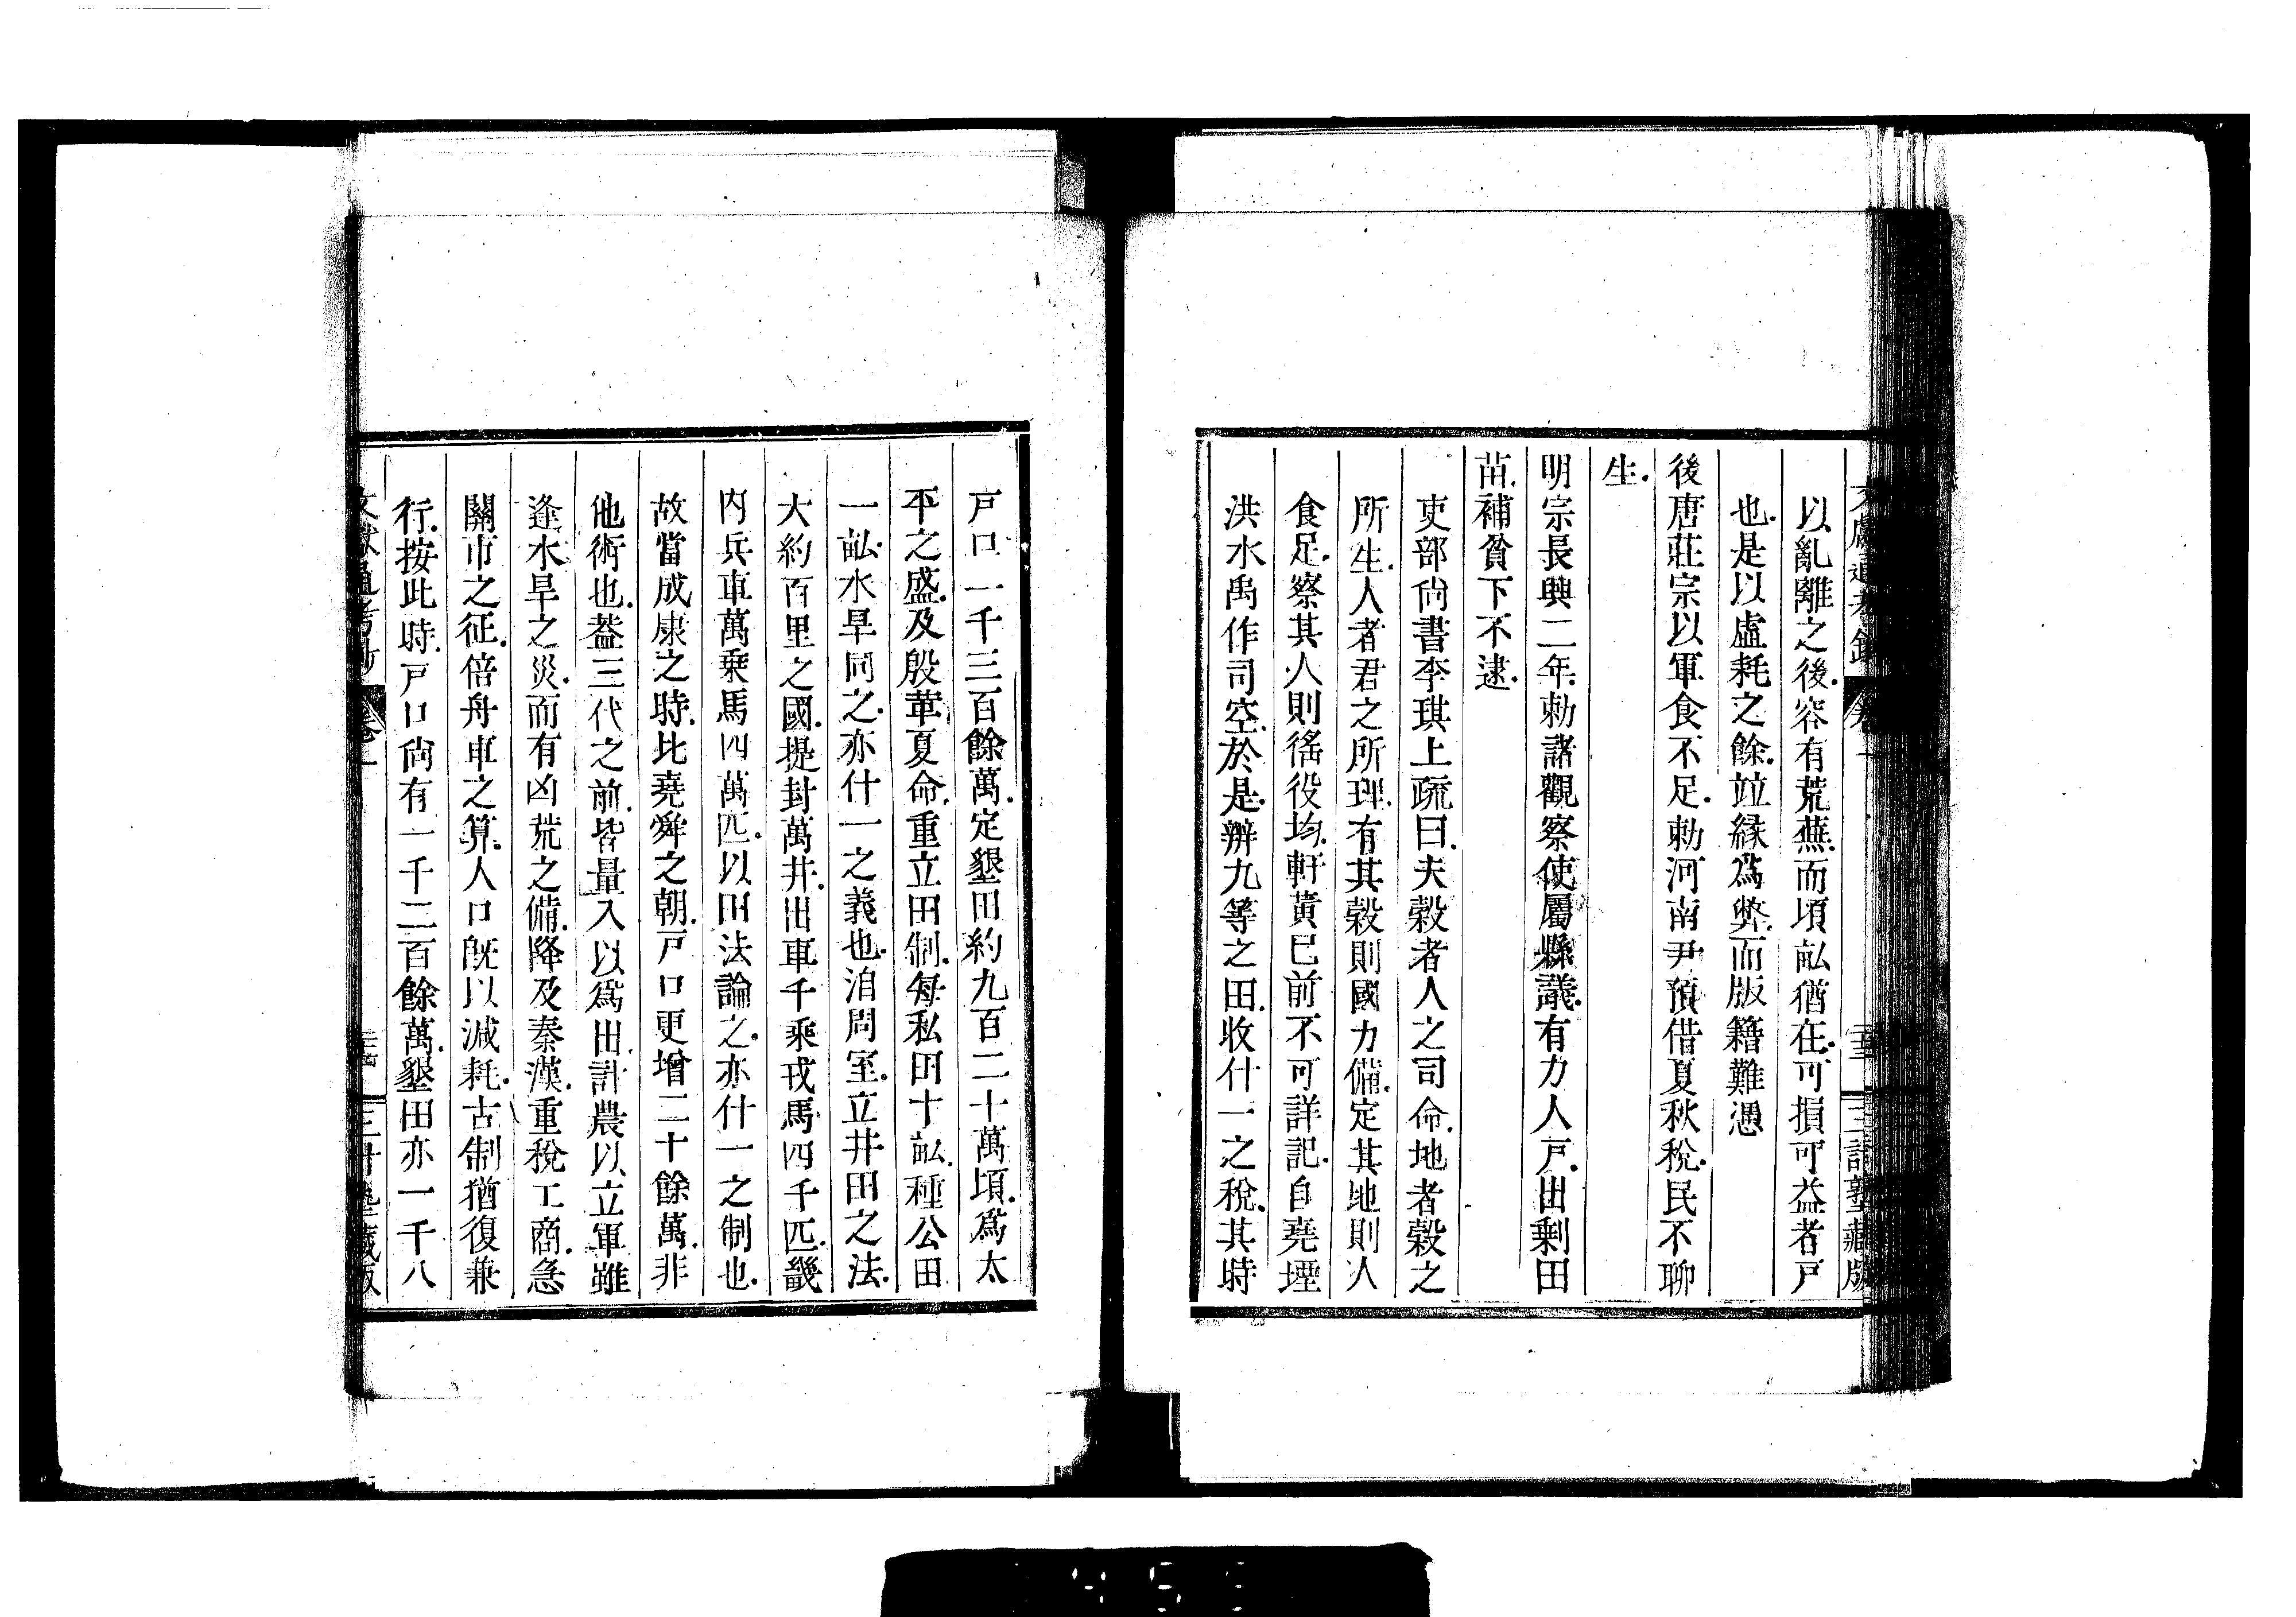 以亂離之後．容有荒蕪．而頃畝猶在．可損可益者戸
也．是以虛耗之餘．竝緣爲弊．而版籍難憑
後唐莊宗以軍食不足．勅河南尹預借夏秋稅．民不聊
生．
明宗長興二年勅諸觀察使屬縣議．有力人戸．出剩田
苗．補貧下不逮．
吏部尙書李琪上疏曰．夫穀者人之司命．地者穀之
所生．人者君之所理．有其穀則國力備．定其地則人
食足．察其人則徭役均．軒黃已前不可詳記．自堯堙
洪水禹作司空．於是．辨九等之田．收什一之稅．其時
戸口一千三百餘萬．定墾田約九百二十萬頃．爲太
平之盛．及殷革夏命．重立田制．每私田十畝．種公田
一畝．水旱同之．亦什一之義也．洎周室．立井田之法．
大約百里之國．提封萬井．出車千乘戎馬四千匹．畿
内兵車萬乗馬四萬匹．以田法論之．亦什一之制也．
故當成康之時．比堯舜之朝．戸口更增二十餘萬．非
他術也．葢三代之前．皆量入以爲出．計農以立軍．雖
逢水旱之災．而有凶荒之備．降及秦漢．重稅工商．急
關市之征．倍舟車之算．人口旣以減耗．古制猶復兼
行．按此時．戸口尙有一千二百餘萬．墾田亦一千八